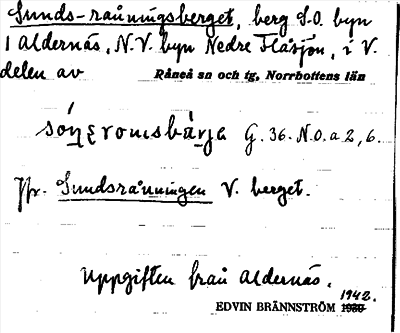 Sunds-rånningsberget, berg S.O. byn
1 Aldernäs, N.V. byn Nedre Flåsjön, i V.
delen av Råneå sn och tg, Norrbottens län
G. 36. N.O. a 2, 6.
Jfr. Sundsrånningen V. berget.
Uppgiften från Aldernäs.
1942.
EDVIN BRÄNNSTRÖM 1930